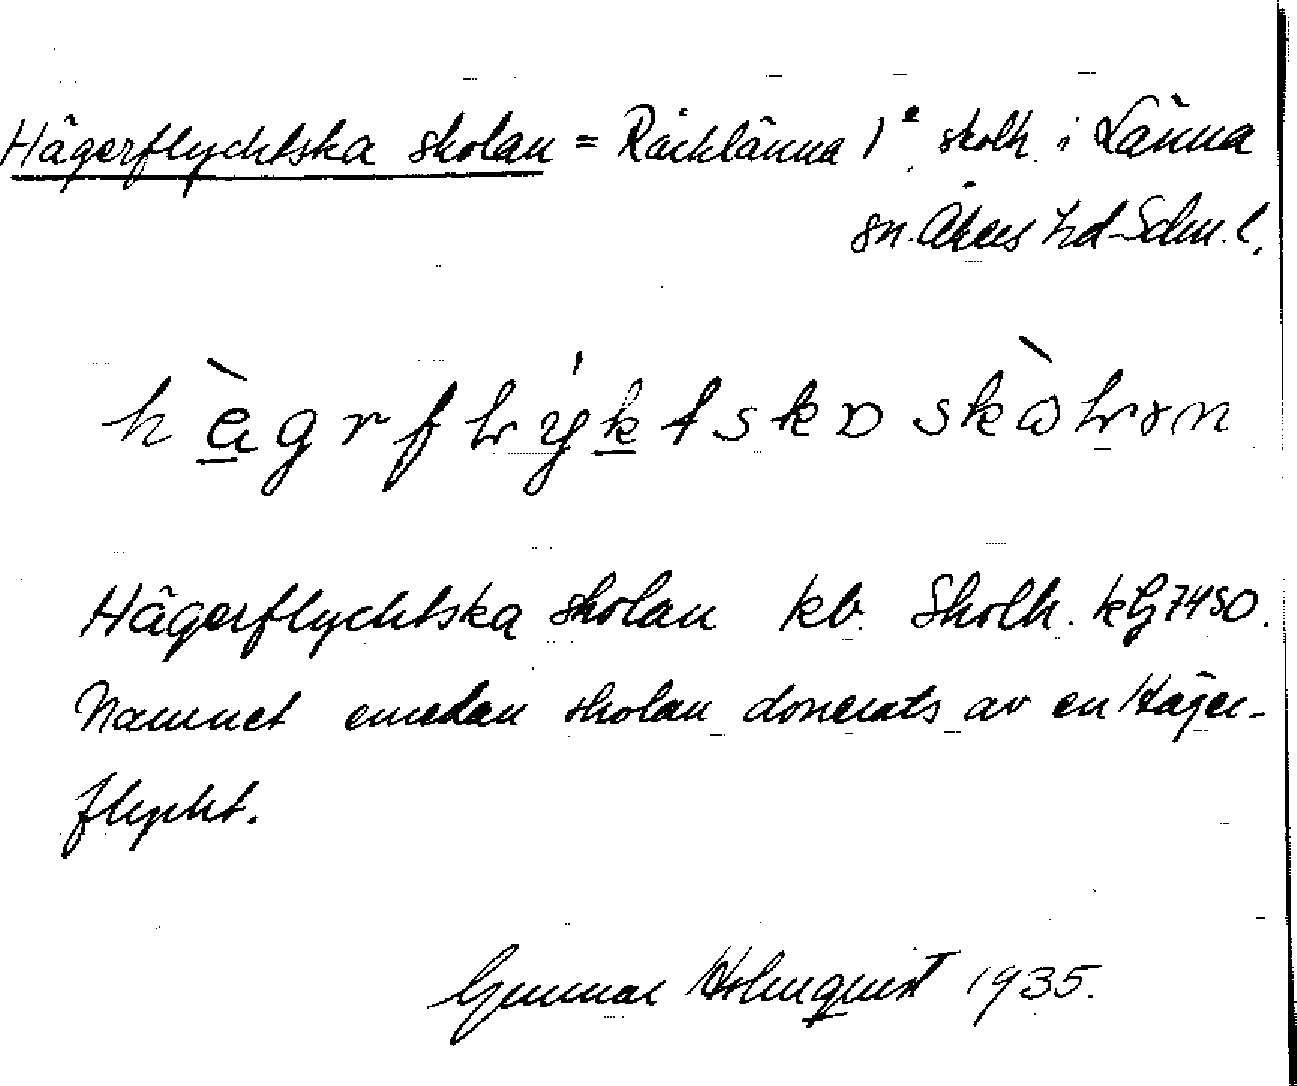 Hägerflychtska skolan = Räcklänna 1ᵃ skolh. i Länna
sn. Åkers hd Sdm. l.
Hägerflychtska skolan kb. Skolh. kG7450.
Namnet emedan skolan donerats av en Häger-
flycht.
Gunnar Holmquist 1935.